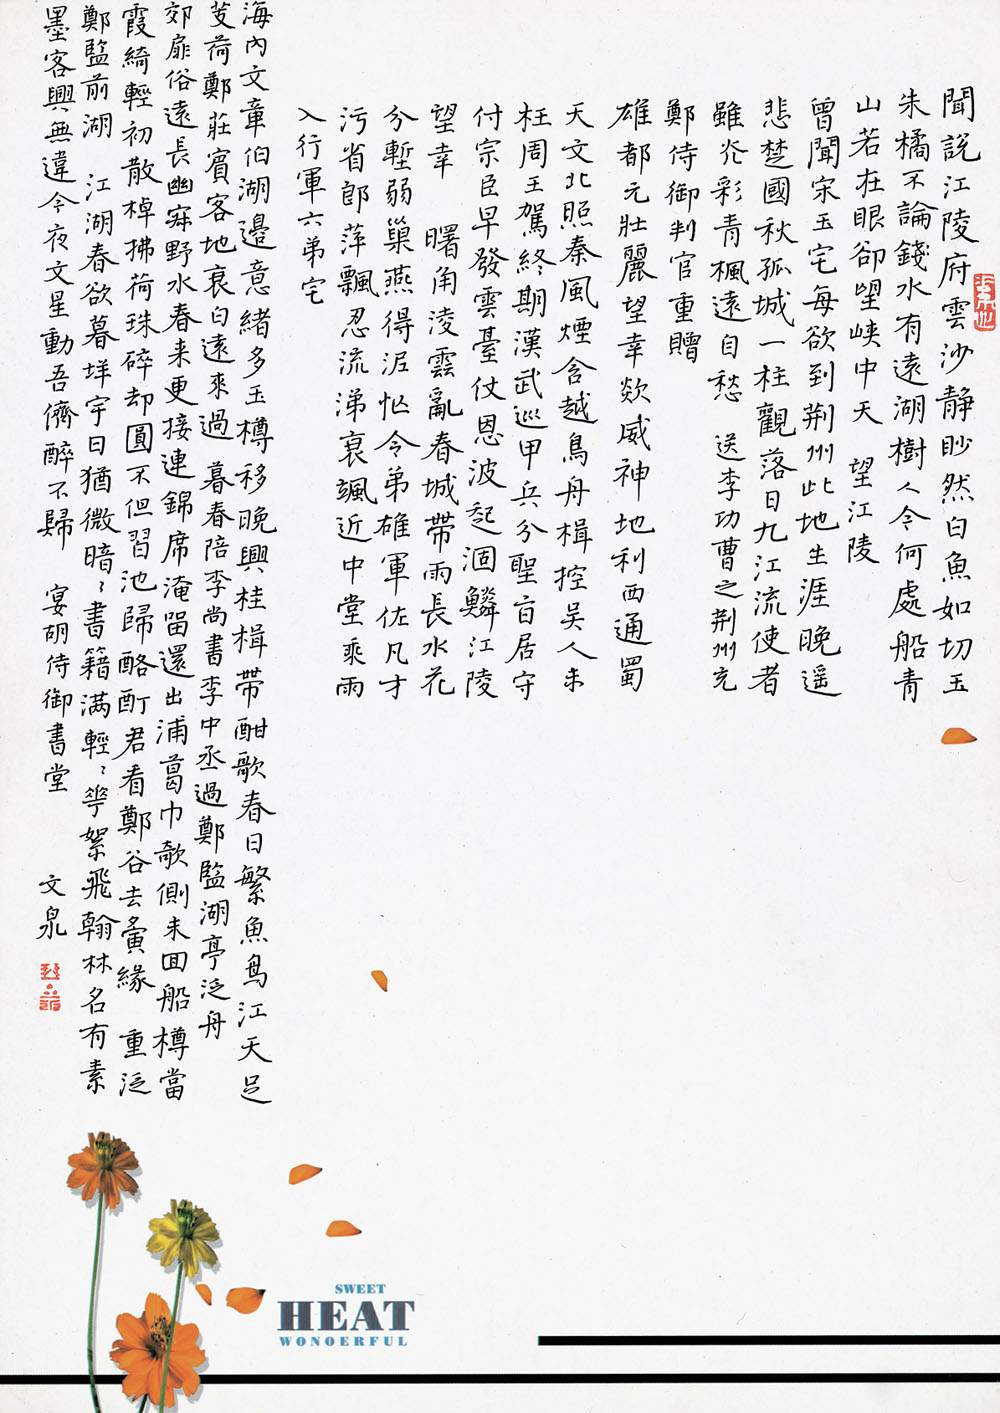 聞說江陵府雲沙靜眇然白魚如切玉
朱橘不論錢水有遠湖樹人今何處船青
山若在眼卻望峽中天 望江陵
曾聞宋玉宅每欲到荆州此地生涯晚遥
悲楚國秋孤城一柱觀落日九江流使者
雖光彩青楓遠自愁 送李功曹之荆州充
鄭侍御判官重贈
雄都元壯麗望幸欻威神地利西通蜀
天文北照秦風煙含越鳥舟楫控吴人未
枉周王駕終期漢武巡甲兵分聖旨居守
付宗臣早發雲臺仗恩波起涸鱗江陵
望幸 曙角淩雲亂春城帶雨長水花
分塹弱巢燕得泥忙令弟雄軍佐凡才
污省郎萍飄忍流涕衰颯近中堂乘雨
入行軍六弟宅
海內文章伯湖邊意緒多玉樽移晚興桂楫帶酣歌春日繁魚鳥江天足
芰荷鄭莊賓客地衰白遠來過 暮春陪李尚書李中丞過鄭監湖亭泛舟
郊扉俗遠長幽寂野水春来更接連錦席淹留還出浦葛巾欹側未回船樽當
霞綺輕初散棹拂荷珠碎却圓不但習池歸酩酊君看鄭谷去夤緣 重泛
鄭監前湖 江湖春欲暮墻宇日猶微暗〻書籍满輕〻花絮飛翰林名有素
墨客興無違今夜文星動吾儕醉不歸 宴胡侍御書堂
文泉
SWEET
HEAT
WONOERFUL